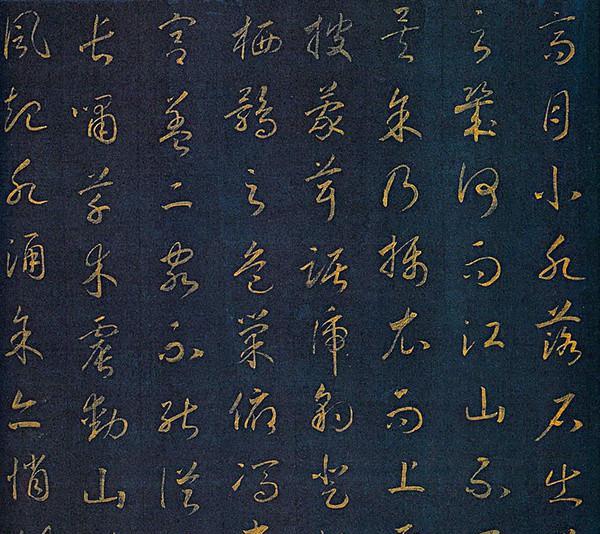 高月小水落石出
之幾何而江山不
矣余乃攝衣而上
披蒙茸踞虎豹登
栖鶻之危巢俯馮
宮蓋二客不能從
長嘯草木震動山
風起水涌余亦悄